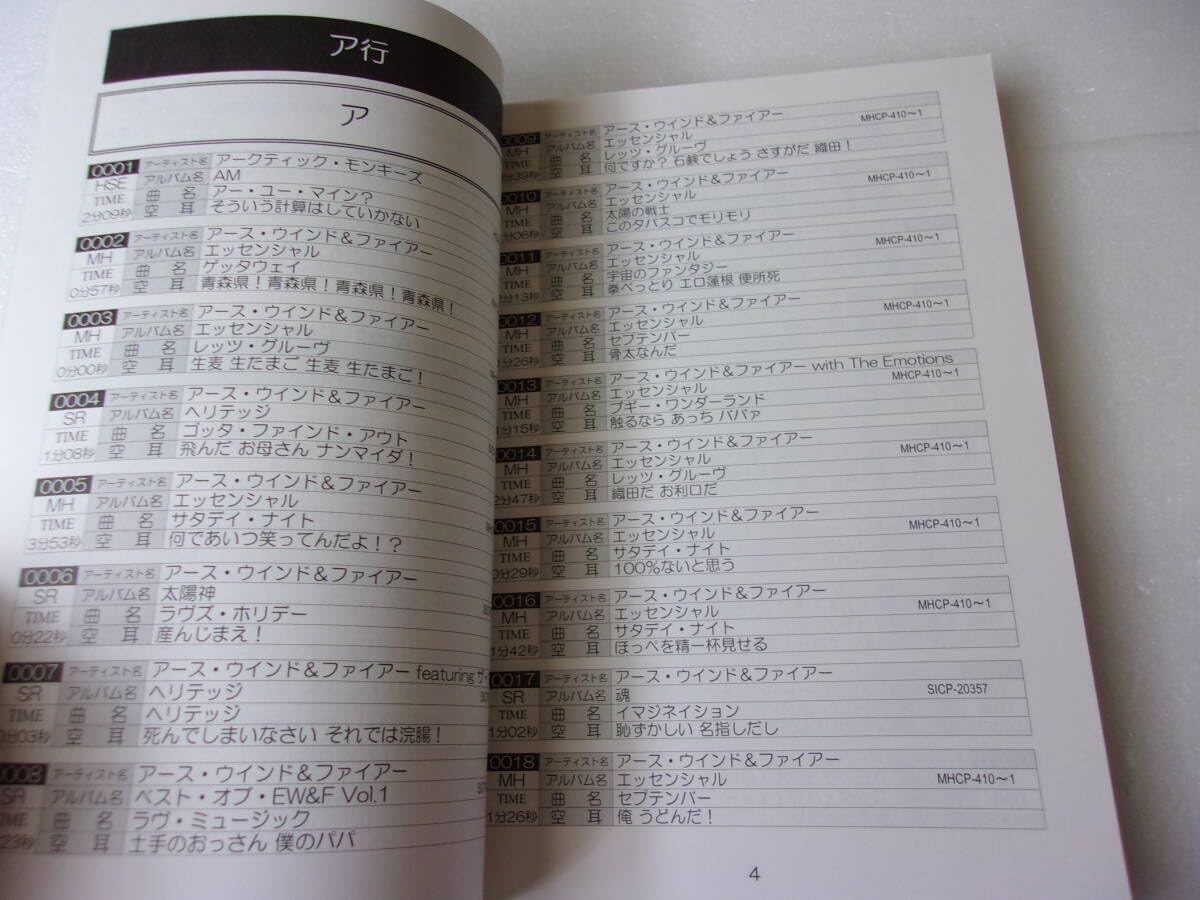 ア行
ア
0001 アーティスト名 アークティック・モンキーズ
HSE アルバム名 AM
TIME 曲名 アー・ユー・マイン？
2分09秒 空耳 そういう計算はしていかない
0002 アーティスト名 アース・ウインド＆ファイアー
MH アルバム名 エッセンシャル
TIME 曲名 ゲッタウェイ
0分57秒 空耳 青森県！青森県！青森県！青森県！
0003 アーティスト名 アース・ウインド＆ファイアー
MH アルバム名 エッセンシャル
TIME 曲名 レッツ・グルーヴ
0分00秒 空耳 生麦 生たまご 生麦 生たまご！
0004 アーティスト名 アース・ウインド＆ファイアー
SR アルバム名 ヘリテッジ
TIME 曲名 ゴッタ・ファインド・アウト
1分08秒 空耳 飛んだ お母さん ナンマイダ！
0005 アーティスト名 アース・ウインド＆ファイアー
MH アルバム名 エッセンシャル
TIME 曲名 サタデイ・ナイト
3分53秒 空耳 何であいつ笑ってんだよ！？
0006 アーティスト名 アース・ウインド＆ファイアー
SR アルバム名 太陽神
TIME 曲名 ラヴズ・ホリデー
0分22秒 空耳 産んじまえ！
0007 アーティスト名 アース・ウインド＆ファイアー featuring ザ・
SR アルバム名 ヘリテッジ
TIME 曲名 ヘリテッジ
0分03秒 空耳 死んでしまいなさい それでは浣腸！
0008 アーティスト名 アース・ウインド＆ファイアー
SR アルバム名 ベスト・オブ・EW&F Vol.1
TIME 曲名 ラヴ・ミュージック
23秒 空耳 土手のおっさん 僕のパパ
0009 アーティスト名 アース・ウインド＆ファイアー
MH アルバム名 エッセンシャル MHCP-410〜1
TIME 曲名 レッツ・グルーヴ
39秒 空耳 何ですか？ 石鹸でしょう さすがだ 織田！
0010 アーティスト名 アース・ウインド＆ファイアー
MH アルバム名 エッセンシャル MHCP-410〜1
TIME 曲名 太陽の戦士
06秒 空耳 このタバスコでモリモリ
0011 アーティスト名 アース・ウインド＆ファイアー
MH アルバム名 エッセンシャル MHCP-410〜1
TIME 曲名 宇宙のファンタジー
13秒 空耳 拳べっとり エロ蓮根 便所死
0012 アーティスト名 アース・ウインド＆ファイアー
MH アルバム名 エッセンシャル MHCP-410〜1
TIME 曲名 セプテンバー
1分26秒 空耳 骨太なんだ
0013 アーティスト名 アース・ウインド＆ファイアー with The Emotions
MH アルバム名 エッセンシャル MHCP-410〜1
TIME 曲名 ブギー・ワンダーランド
1分15秒 空耳 触るなら あっち ババァ
0014 アーティスト名 アース・ウインド＆ファイアー
MH アルバム名 エッセンシャル MHCP-410〜1
TIME 曲名 レッツ・グルーヴ
2分47秒 空耳 織田だ お利口だ
0015 アーティスト名 アース・ウインド＆ファイアー
MH アルバム名 エッセンシャル MHCP-410〜1
TIME 曲名 サタデイ・ナイト
0分29秒 空耳 100%ないと思う
0016 アーティスト名 アース・ウインド＆ファイアー
MH アルバム名 エッセンシャル MHCP-410〜1
TIME 曲名 サタデイ・ナイト
1分42秒 空耳 ほっぺを精一杯見せる
0017 アーティスト名 アース・ウインド＆ファイアー
SR アルバム名 魂 SICP-20357
TIME 曲名 イマジネイション
1分02秒 空耳 恥ずかしい 名指しだし
0018 アーティスト名 アース・ウインド＆ファイアー
MH アルバム名 エッセンシャル MHCP-410〜1
TIME 曲名 セプテンバー
1分26秒 空耳 俺 うどんだ！
4